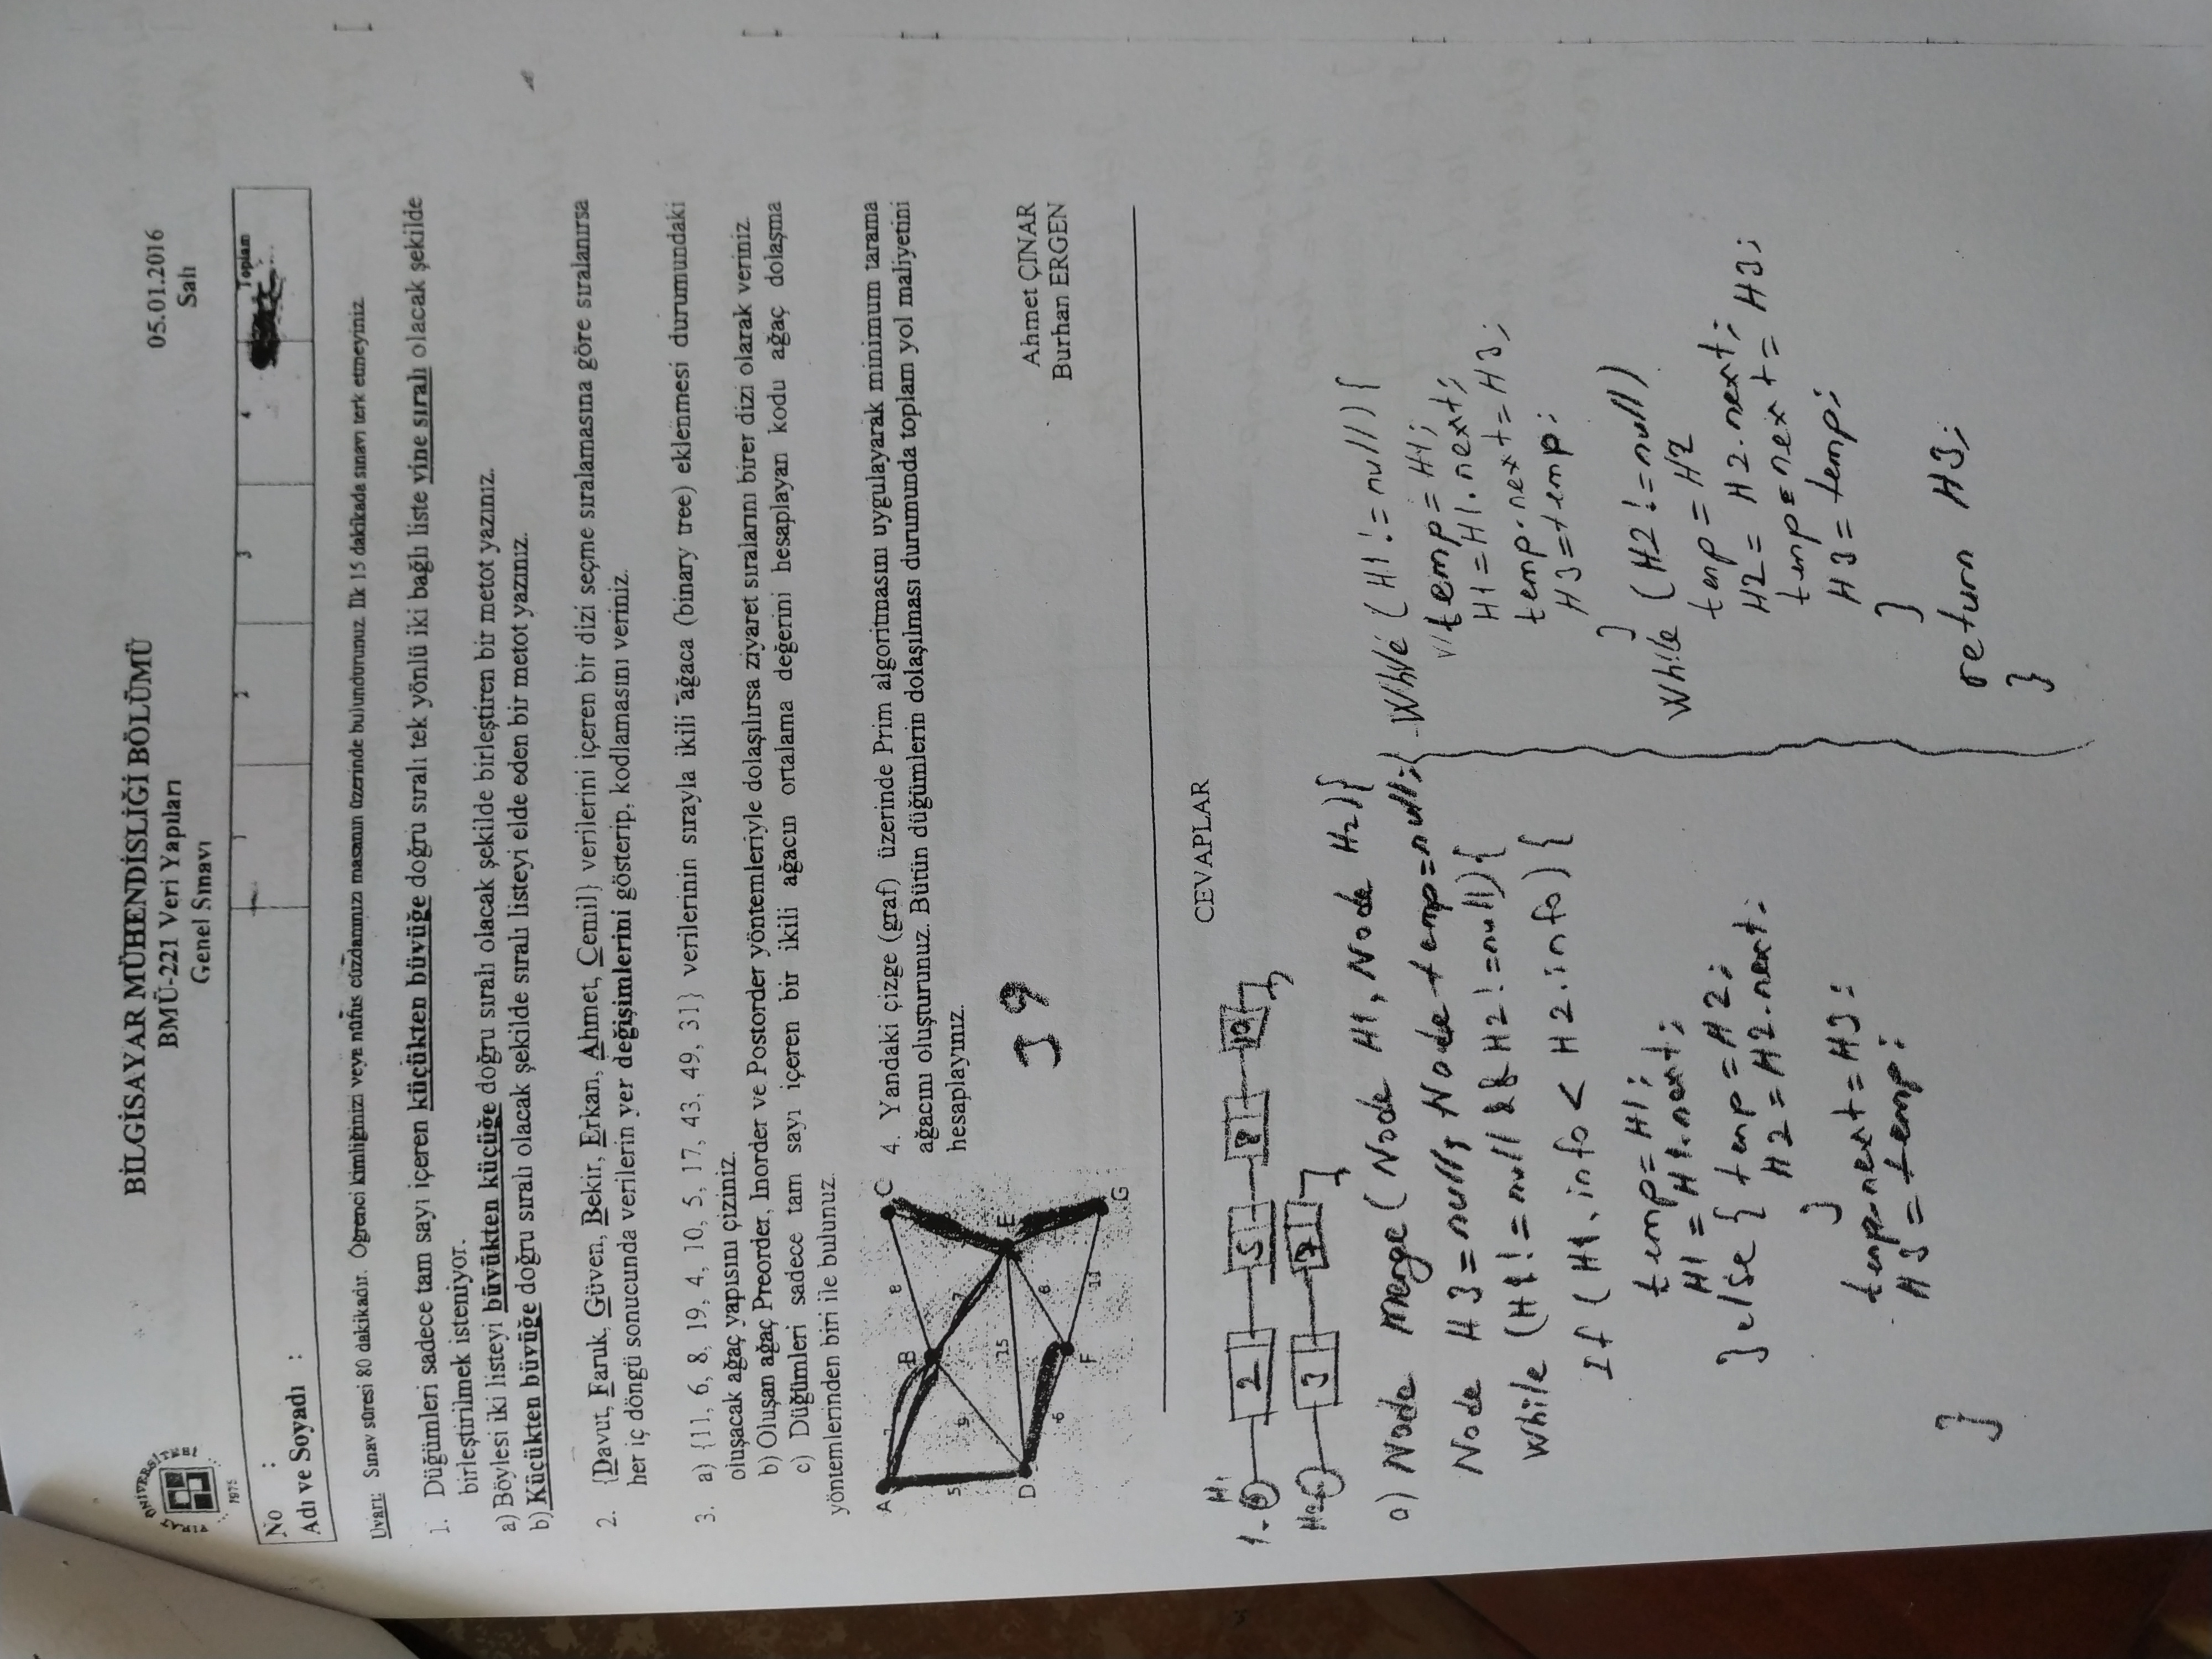 FIRAT ÜNİVERSİTESİ
1975
BİLGİSAYAR MÜHENDİSLİĞİ BÖLÜMÜ
BMÜ-221 Veri Yapıları
Genel Sınavı
05.01.2016
Salı
No :
Adı ve Soyadı :
1 2 3 4 Toplam
Uyarı: Sınav süresi 80 dakikadır. Öğrenci kimliğinizi veya nüfus cüzdanınızı masanın üzerinde bulundurunuz. İlk 15 dakikada sınavı terk etmeyiniz
1. Düğümleri sadece tam sayı içeren küçükten büyüğe doğru sıralı tek yönlü iki bağlı liste yine sıralı olacak şekilde
birleştirilmek isteniyor.
a) Böylesi iki listeyi büyükten küçüğe doğru sıralı olacak şekilde birleştiren bir metot yazınız.
b) Küçükten büyüğe doğru sıralı olacak şekilde sıralı listeyi elde eden bir metot yazınız.
2. {Davut, Faruk, Güven, Bekir, Erkan, Ahmet, Cemil} verilerini içeren bir dizi seçme sıralamasına göre sıralanırsa
her iç döngü sonucunda verilerin yer değişimlerini gösterip, kodlamasını veriniz.
3. a) {11, 6, 8, 19, 4, 10, 5, 17, 43, 49, 31} verilerinin sırayla ikili ağaca (binary tree) eklenmesi durumundaki
oluşacak ağaç yapısını çiziniz.
b) Oluşan ağaç Preorder, Inorder ve Postorder yöntemleriyle dolaşılırsa ziyaret sıralarını birer dizi olarak veriniz.
c) Düğümleri sadece tam sayı içeren bir ikili ağacın ortalama değerini hesaplayan kodu ağaç dolaşma
yöntemlerinden biri ile bulunuz.
A B C D E F G
5 9 8 7 15 6 8 11
4. Yandaki çizge (graf) üzerinde Prim algoritmasını uygulayarak minimum tarama
ağacını oluşturunuz. Bütün düğümlerin dolaşılması durumunda toplam yol maliyetini
hesaplayınız.
39
Ahmet ÇINAR
Burhan ERGEN
CEVAPLAR
1- H1 2 5 8 10
H2 3 7
a) Node Merge ( Node H1, Node H2) {
Node H3 = null; Node temp = null;
while (H1 != null && H2 != null) {
If ( H1.info < H2.info) {
temp = H1;
H1 = H1.next;
} else { temp = H2;
H2 = H2.next;
}
temp.next = H3;
H3 = temp;
}
While ( H1 != null ) {
temp = H1;
H1 = H1.next;
temp.next = H3;
H3 = temp;
}
While (H2 != null)
temp = H2
H2 = H2.next;
temp = next = H3;
H3 = temp;
}
return H3;
}